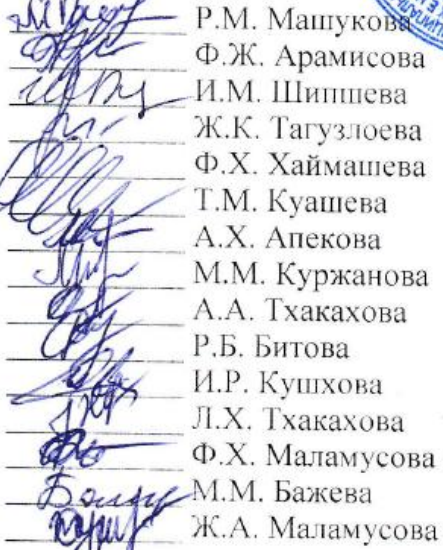 Р.М. Машукова
Ф.Ж. Арамисова
И.М. Шипшева
Ж.К. Тагузлоева
Ф.Х. Хаймашева
Т.М. Куашева
А.Х. Апекова
М.М. Куржанова
А.А. Тхакахова
Р.Б. Битова
И.Р. Кушхова
Л.Х. Тхакахова
Ф.Х. Маламусова
М.М. Бажева
Ж.А. Маламусова